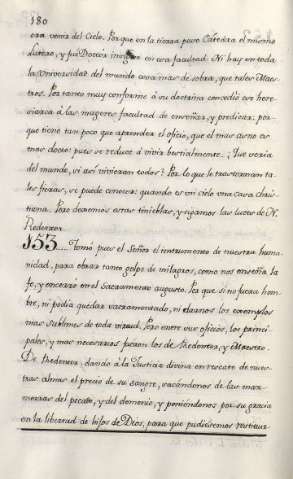 180
era venir del Cielo. Porque en la tierra puso Cátedra el mismo
Lutero, y fue Doctor insigne en esa facultad. Ni hay en toda
la Universidad del mundo cosa mas de sobra, que tales Maes
tros. Por tanto muy conforme à su doctrina concedio ese here
siarca à las mugeres facultad de enseñar, y predicar; por-
que tiene tan poco que aprender el oficio, que el mas asno es
mas docto: pues se reduce à vivir bestialmente. ¿Que seria
del mundo, si asi vivieran todos? Por lo que le trastornarian ta-
les fieras, se puede conocer: quando es un cielo una casa chris-
tiana. Pero dexemos estas tinieblas, y sigamos las luces de N.
Redentor.
153.... Tomó pues el Señor el instrumento de nuestra huma
nidad, para obrar tanto golpe de milagros, como nos enseña la
fe, y encerrar en el Sacramento augusto. Por que si no fuera hom-
bre, ni podia quedar sacramentado, ni darnos los exemplos
mas sublimes de toda virtud. Pero entre sus oficios, los princi-
pales, y mas necesarios fueron los de Redentor, y Maestro.
De Redentor: dando à la Justicia divina en rescate de nues-
tras almas el precio de su sangre, sacandonos de las maz-
morras del pecado, y del demonio, y poniendonos por su gracia
en la libertad de hijos de Dios, para que pudiesemos restaur